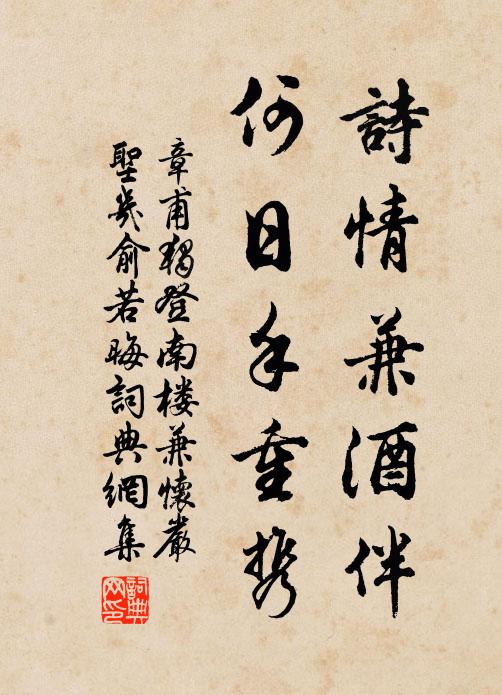 詩情兼酒伴
何日手重携
章甫獨登南楼兼懷嚴
聖幾俞若晦詞典網集
詞典
网印